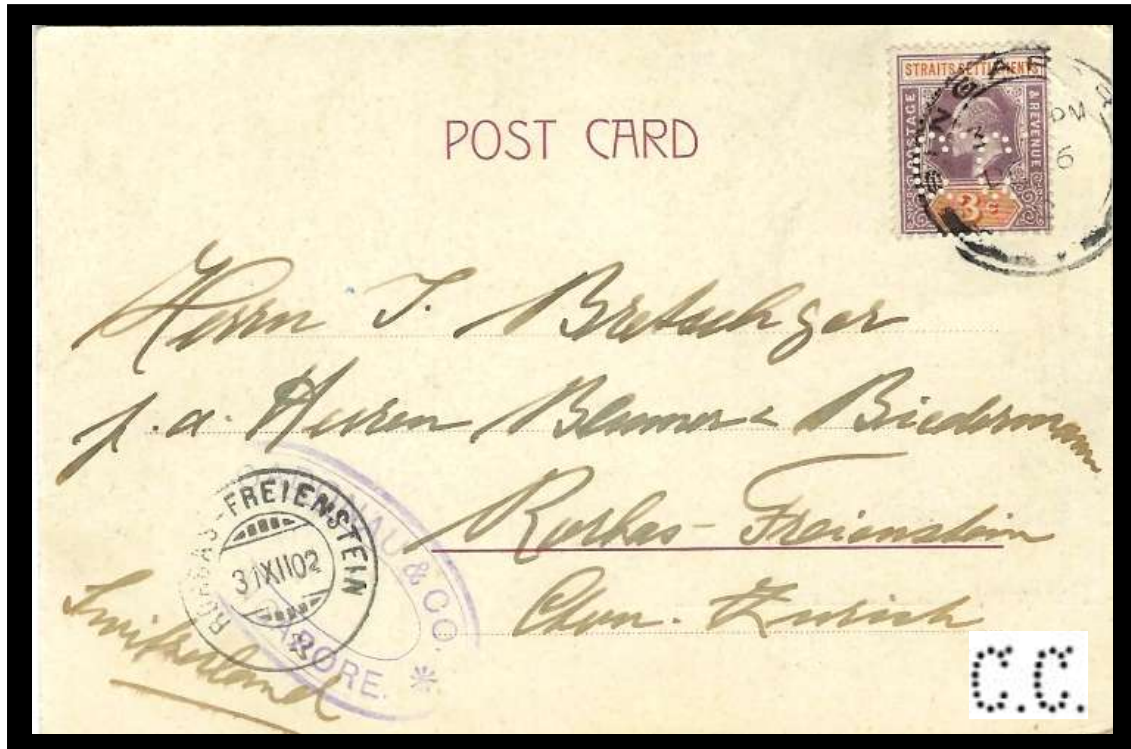 POST CARD
STRAITS SETTLEMENTS
POSTAGE & REVENUE
3 c
SINGAP
PM
6
Herrn J. Bretschger
p. a. Herren Blumer & Biedermann
Rorbas-Freienstein
Cton. Zurich
Switzerland
RORBAS-FREIENSTEIN
31 XII 02
NAU & CO.
APORE.
C.C.